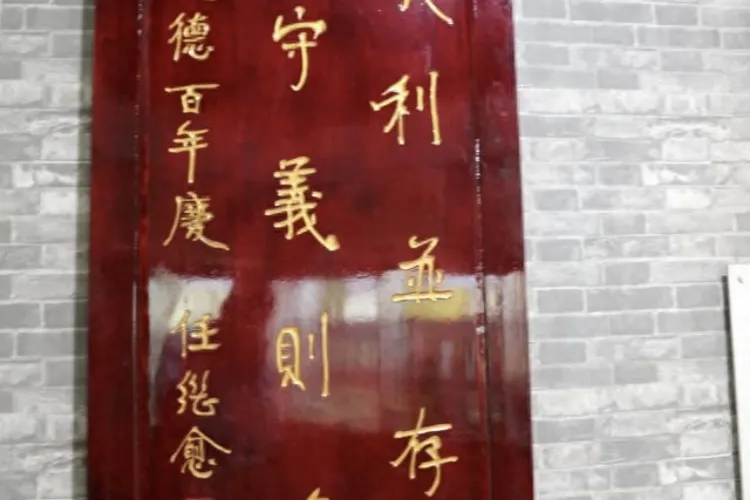 利並存
守義則
德百年慶 任繼愈